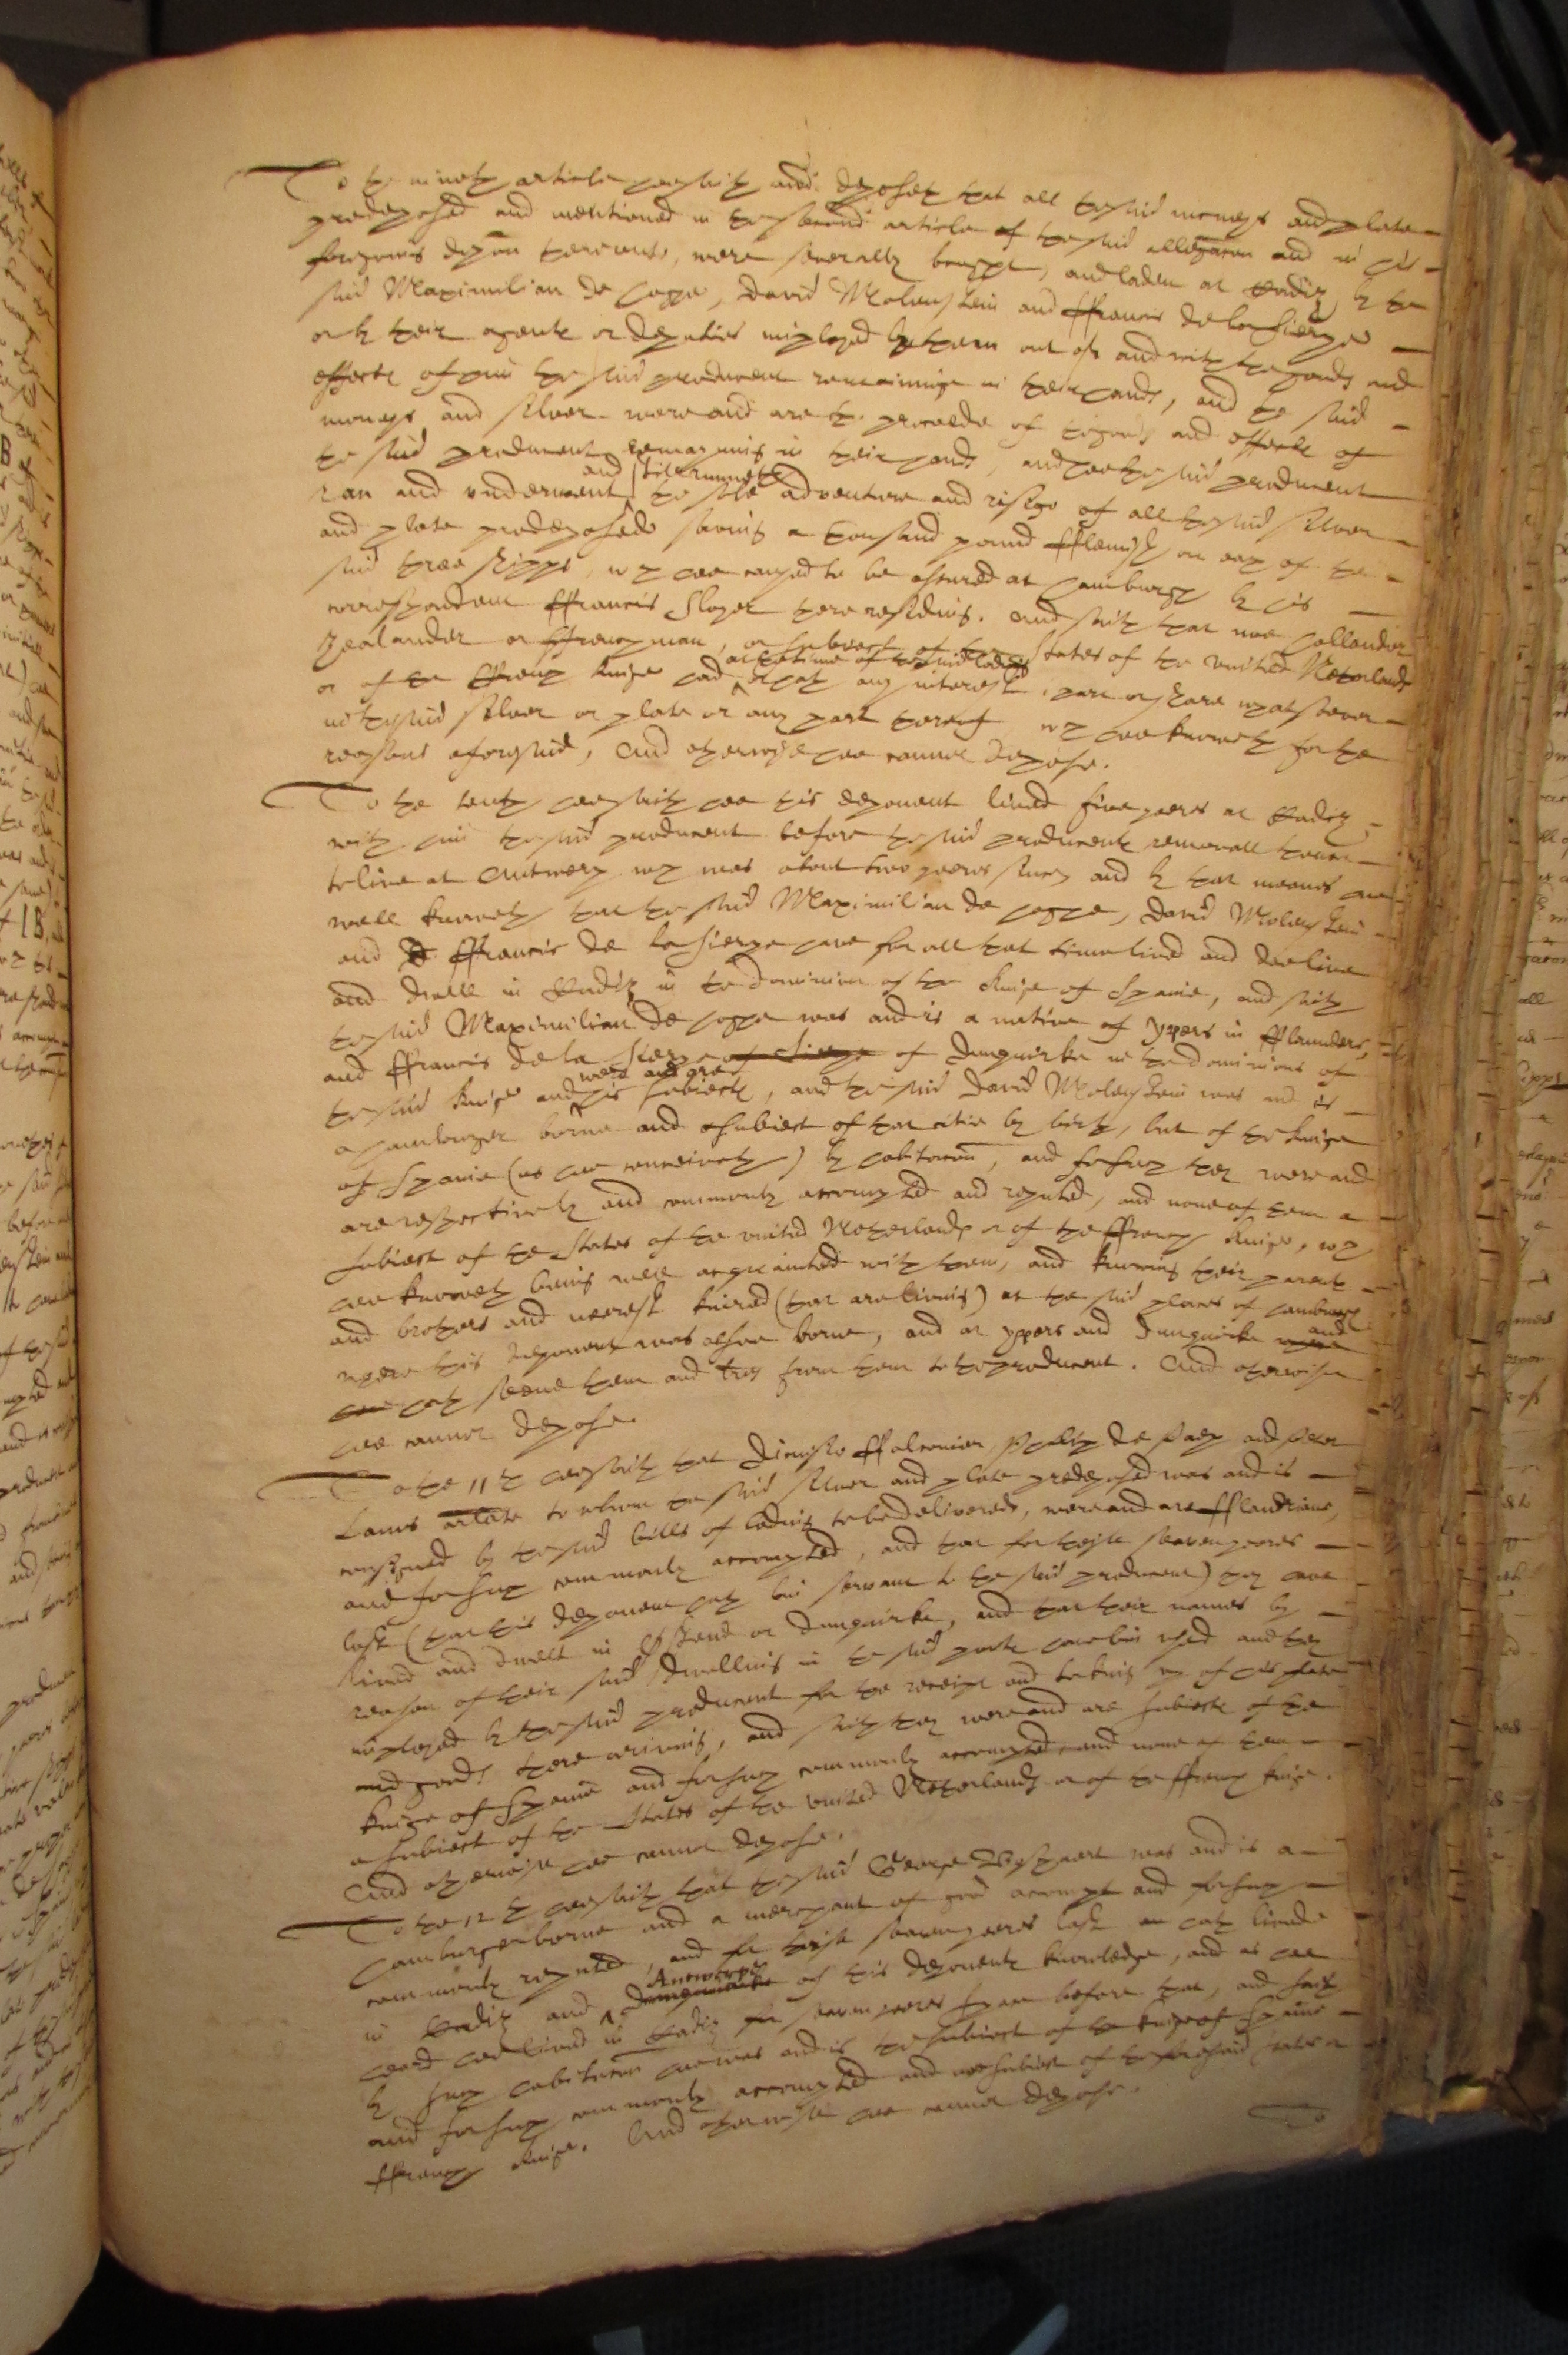 To the nineth article hee saith and deposeth that all the said moneys and plate
predeposed and mentioned in the second article of the said allegation and in his
foregoeing deposition thereunto, were severally bought, and laden at Cadiz by the
said Maximilian de Hoges, David Molenstein and ffrancis de la Sierge
or by their agents or deputies imployed by them out of and with the goods and
effects of him the said producent remaineinge in their hands, and the said
moneys and silver were and are the proceede of the goods and effects of
the said producent remayning in their hands, and hee the said producent
and still runneth
ran and underwent the sole adventure and risigo of all the said silver
and plate predeposed saving a thousand pound fflemish on each of the
said three shipps, wch hee caused to be assured at Hamburgh by his
correspondent ffrancis Sloyer there residing. And saith that noe Hollander
Zealander or ffrenchman, or subiect of the States of the United Netherlands
at the time of the said lading
or of the ffrench kinge had or hath any interest, part or share whatsoever
in the said silver or plate or any part thereof wch hee knoweth for the
reasons aforesaid, And otherwise hee cannot depose.
To the tenth hee saith hee this deponent lived five yeers at Cadiz
with him the said producent before the said producents removall thence
to live at Antwerp wch was about two yeeres since and by that meanes hee
well knoweth that the said Maximilian de Hoges, David Molenstein
and ffrancis de la Sierge have for all that time lived and doe live
and dwell in Cadiz in the dominion of the kinge of Spaine, and saith
the said Maximilian de Hoges was and is a native of Ypers in fflanders,
and ffrancis de la Sierge of Dunquirke in the dominions of
were and are
the said kinge and his subiects, and the said David Molenstein was and is
a Hamburger borne and a subiect of that citie by birth, but of the kinge
of Spaine (as hee conceiveth) by habitation, and for such they were and
are respectively and commonly accompted and reputed, and none of them a
subiect of the States of the United Netherlands or of the ffrench kinge, wch
hee knoweth being well acquainted with them, and knowing their parents
and brothers and neerest kinred (that are living) at the said places of Hamburgh
where this deponent was alsoe borne, and at Ypers and Dunquirke and
hath seene them and from them to the producent. And otherwise
hee cannot depose.
To the 11th hee saith that Dionisio ffalconier, Phillip de Paep and Peter
Lams arlate to whom the said silver and plate predeposed was and is
consigned by the said bills of lading to be delivered, were and are fflandrians,
and for such commonly accompted, and that for theise seaven yeeres
last (that this deponent hath bin servant to the said producent) they have
lived and dwelt in Ostend or Dunquirke, and that their names by
reason of their said dwelling in the said ports have bin used and they
imployed by the said producent for the receipt and taking up of his plate
and goods there ariving, and saith they were and are subiects of the
kinge of Spaine and for such commonly accompted, and none of them
a subiect of the States of the United Netherlands or of the ffrench kinge.
And otherwise hee cannot depose.
To the 12th hee saith that the said George Boschaert was and is a
Hamburger borne and a merchant of good accompt and for such
commonly reputed, and for theise seaven yeeres last hath lived
Antwerpe
in Cadiz and of this deponents knowledge, and as hee
heard hee lived in Cadiz for seaven yeeres space before that, and saith
by such habitation hee was and is the subiect of the kinge of Spaine
and for such commonly accompted and noe subiect of the foresaid States or
ffrench kinge. And otherwise hee cannot depose.
To